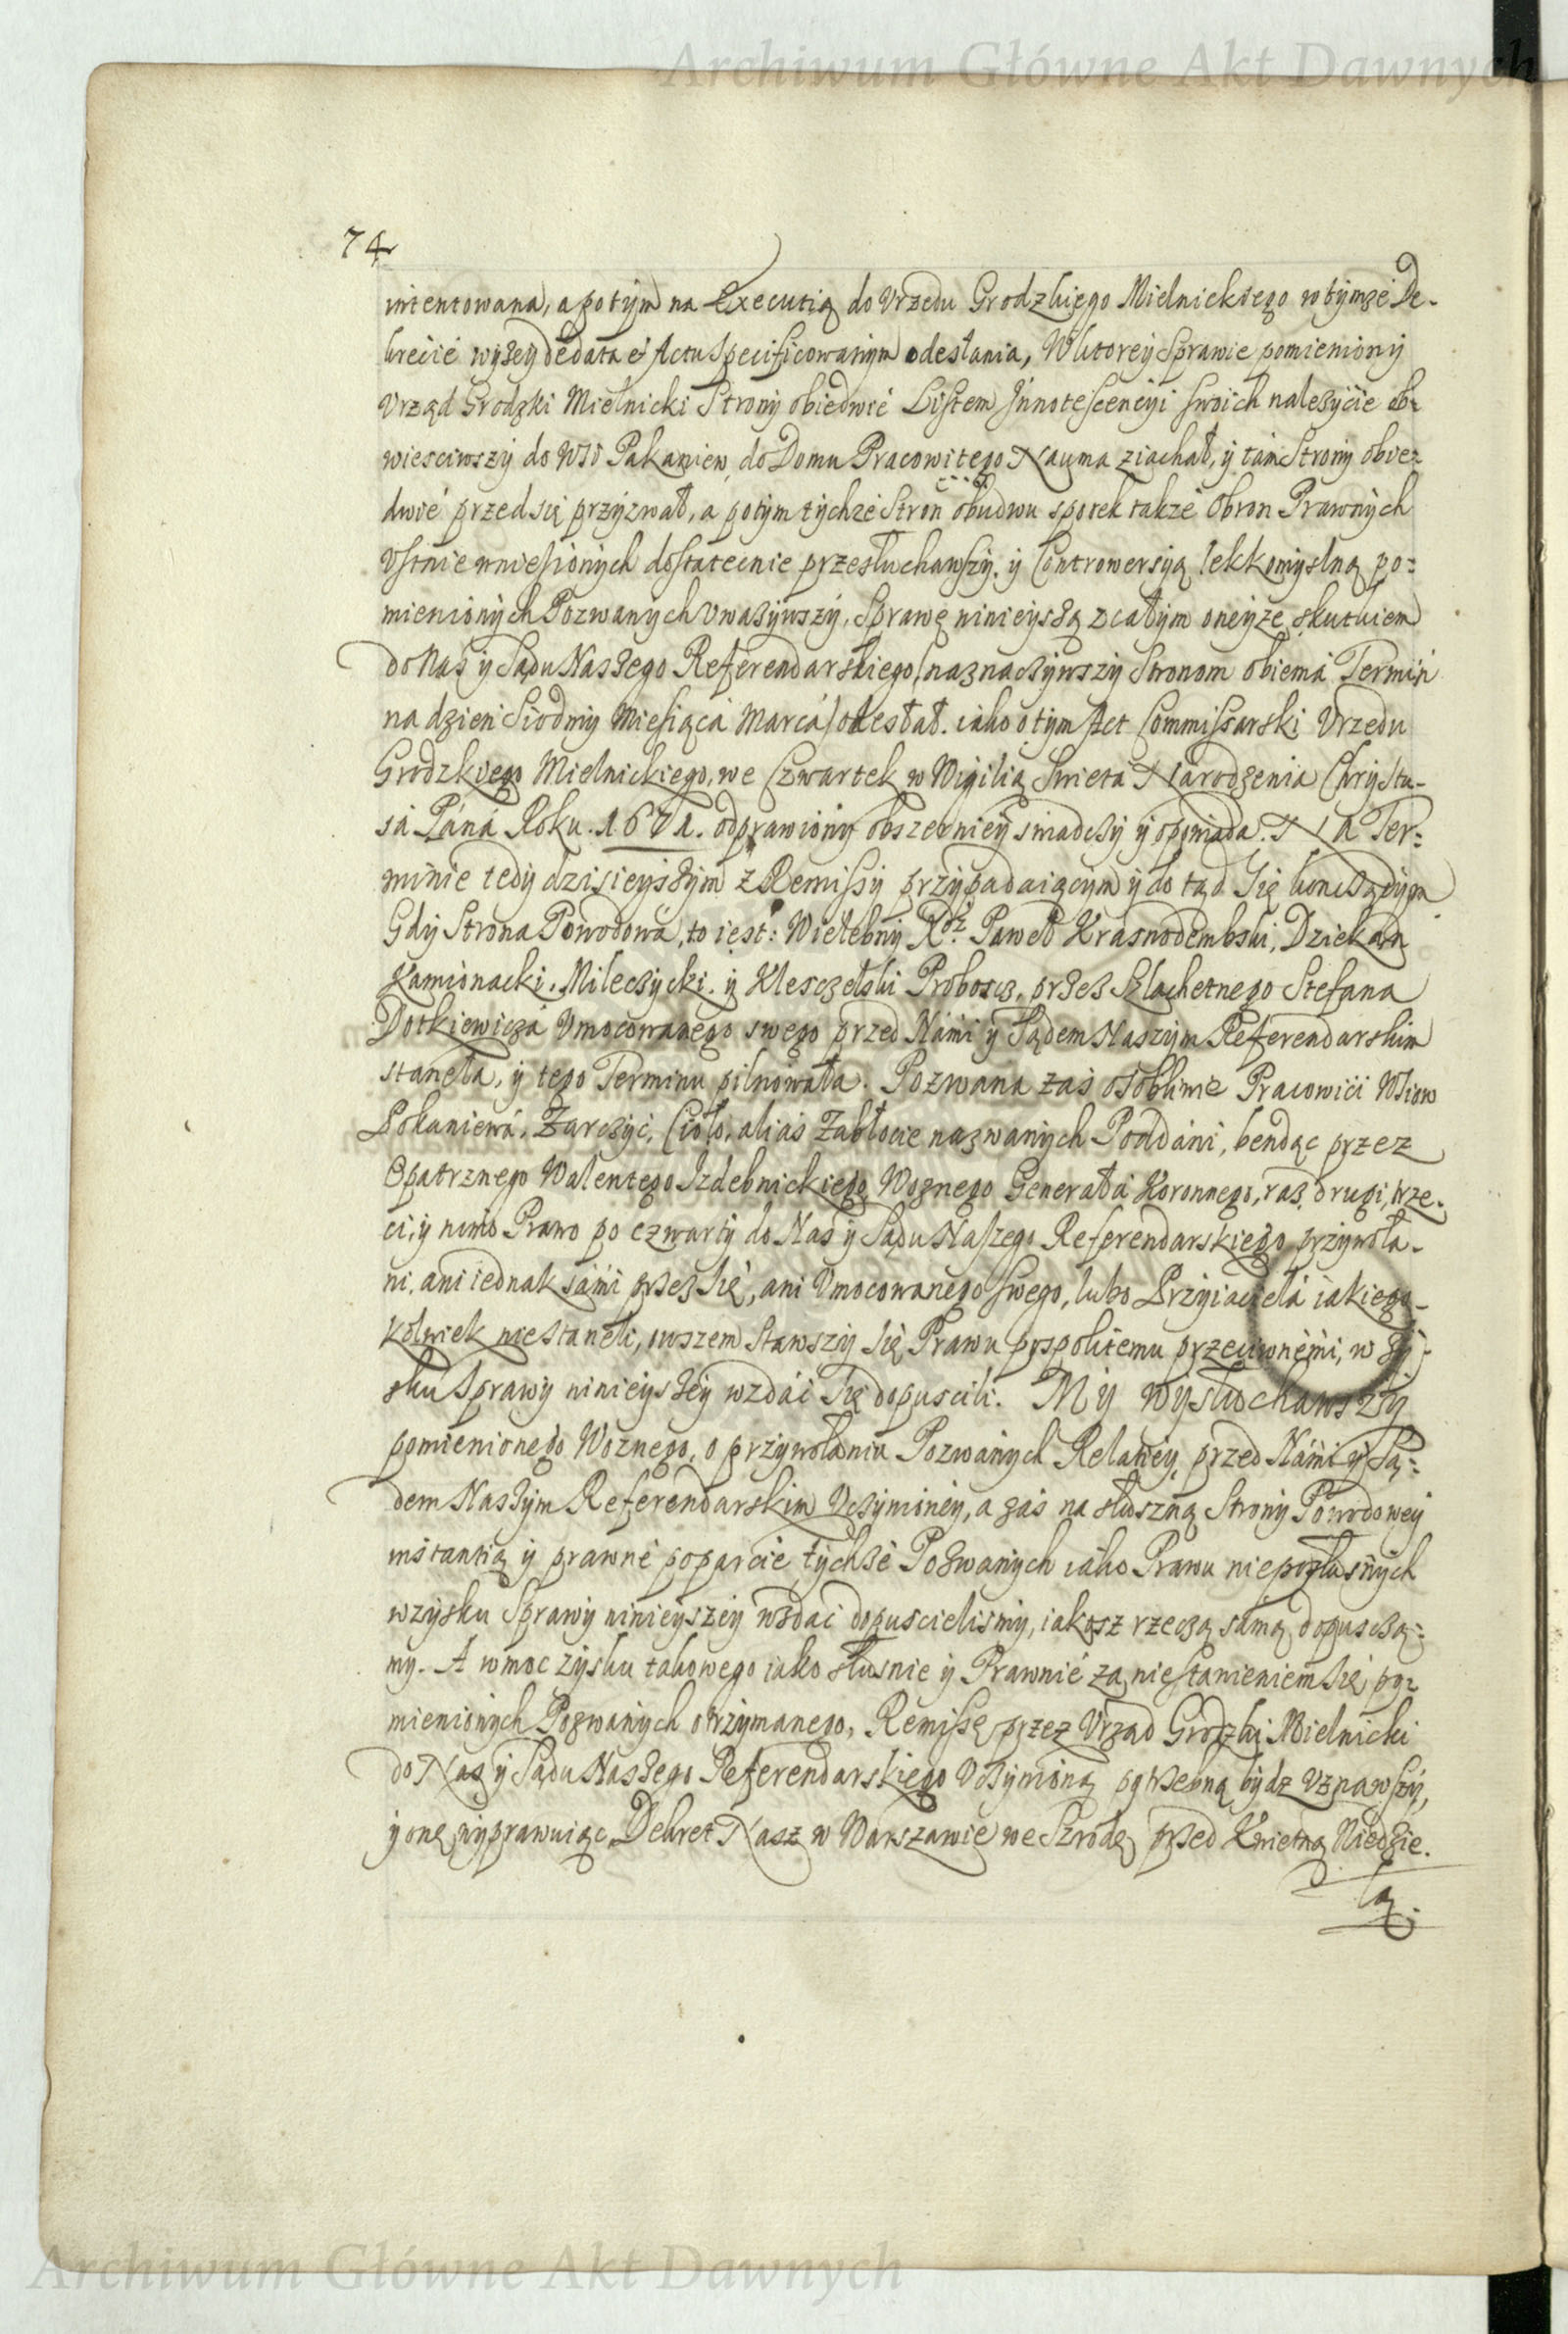 Archiwum Główne Akt Dawnych
74
intentowana, a potym na Executią do Vrzedu Grodzkiego Mielnickiego w tymze De-
krecie wyzey de data et Actu Specificowanym odesłania, W ktorey Sprawie pomieniony
Vrząd Grodzki Mielnicki Strony obiedwie Listem Innotescencyi swoich nalezycie ob-
wiesciwszy do Wsi Pakaniew, do Domu Pracowitego Nauma ziachał, y tam Strony obie-
dwie przed się przyzwał, a potym tychze Stron obudwu sporek takze Obron Prawnych
Vstnie wniesionych dostatecnie przesłuchawszy, y Controwersyą lekkomyslną po-
mienionych Pozwanych Vwazywszy, Sprawę ninieyszą z całym oneyze skutkiem
do Nas y Sądu Naszego Referendarskiego (naznaczywszy Stronom obiema Termin
na dzien Siodmy Miesiąca Marca) odesłał. iako o tym Act Commissarski Vrzedu
Grodzkiego Mielnickiego, we Czwartek w Wigilią Swieta Narodzenia Chrystu-
sa Pana Roku. 1671. odprawiony obszerniey swiadczy y opowiada. Na Ter-
minie tedy dzisieyszym z Remissy przypadaiącym y do tąd Się kontządzym
Gdy Strona Powodowa, to iest: Wielebny Xdz. Paweł Krasnodembski, Dziekan
Kamionacki, Mileczycki, y Klesczelski Proboscz, przez Szlachetnego Stefana
Dotkiewicza Vmocowanego swego przed Nami y Sądem Naszym Referendarskim
staneła, y tego Terminu pilnowała. Pozwana zas osobliwie Pracowici Wsiow
Pokaniewa, Zarczyc, Cioło, alias Zabłocie nazwanych Poddani, bendąc przez
Opatrznego Walentego Izdebnickiego Woznego Generała Koronnego, raz, drugi, trze-
ci, y nimo Prawo po czwarty do Nas y Sądu Naszego Referendarskiego przywoła-
ni, ani iednak sami przez się, ani Vmocowanego swego, lubo Przyiaciela iakiego-
kolwiek nie staneli, owszem stawszy się Prawu pospolitemu przeciwnemi, w zy-
sku Sprawy ninieyszey wzdać się dopuscili. My wysłuchawszy
pomienionego Woznego, o przywołaniu Pozwanych Relacyey, przed Nami y Są-
dem Naszym Referendarskim Vczynioney, a zas na słuszną Strony Powodowey
instantią y prawne poparcie tychze Pozwanych iako Prawu nieposłusnych
w zysku Sprawy ninieyszey wzdać dopuscielismy, iakosz rzeczą samą dopuszcza-
my. A w moc zysku takowego iako słusnie y Prawnie za niestanieniem się po-
mienionych Pozwanych otrzymanego, Remissę przez Vrząd Grodzki Mielnicki
do Nas y Sądu Naszego Referendarskiego Vczynioną potrzebną bydz Vznawszy,
y onę wyprawuiąc, Dekret Nasz w Warszawie we Szrodę przed Kwietną Niedzie-
lą.
Archiwum Główne Akt Dawnych